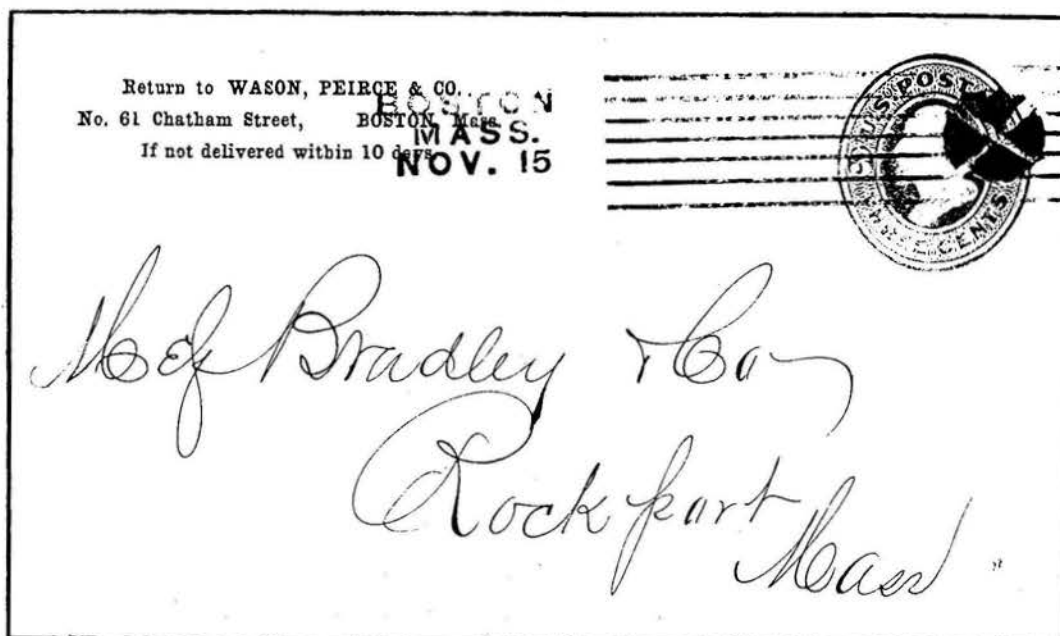 Return to WASON, PEIRCE & CO.
No. 61 Chatham Street, BOSTON, Mass.
If not delivered within 10 days.
BOSTON
MASS.
NOV. 15
U.S. POST
THREE CENTS
Bradley & Co
Rockport
Mass